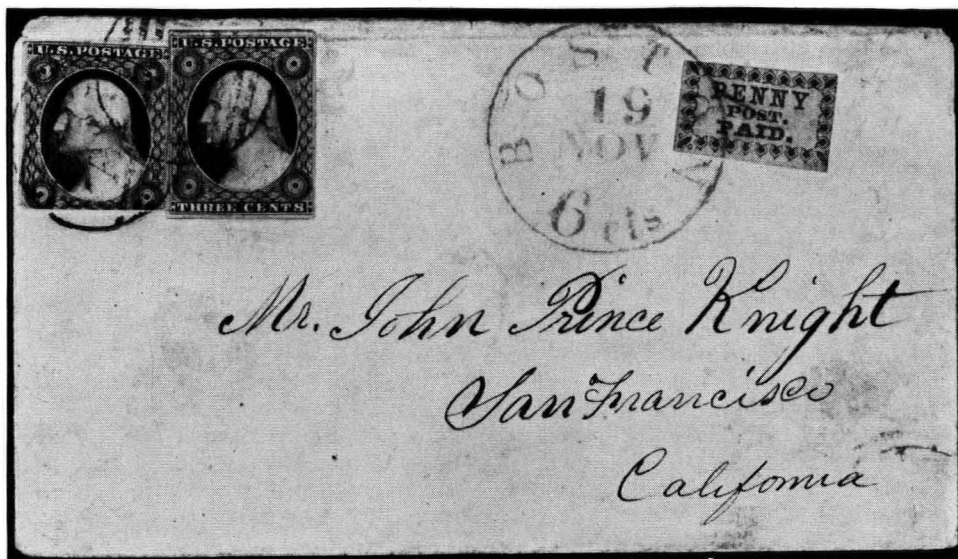 U.S. POSTAGE
U.S. POSTAGE
THREE CENTS
BOSTON
19
NOV
6 cts
PENNY
POST.
PAID.
Mr. John Prince Knight
San Francisco
California